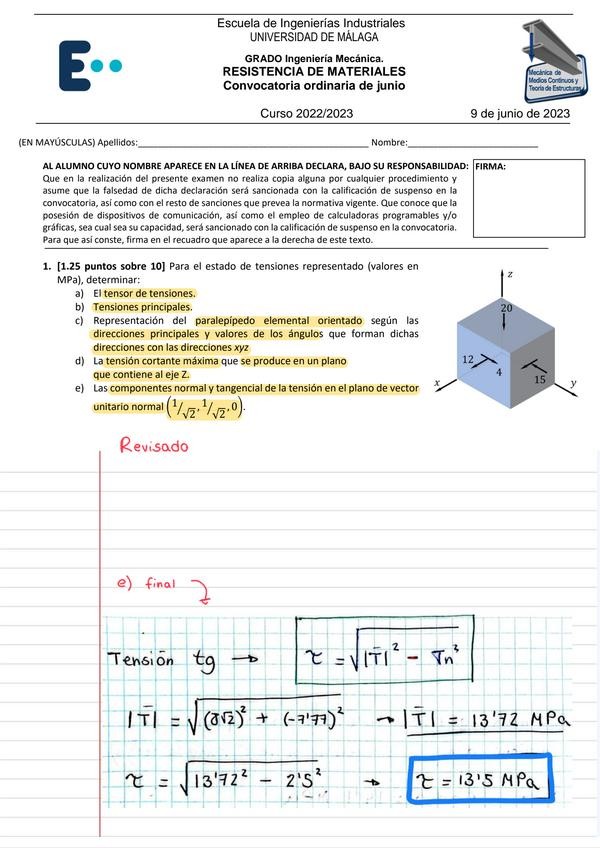 Escuela de Ingenierías Industriales
UNIVERSIDAD DE MÁLAGA
GRADO Ingeniería Mecánica.
RESISTENCIA DE MATERIALES
Convocatoria ordinaria de junio
Mecánica de
Medios Continuos y
Teoría de Estructuras
Curso 2022/2023 9 de junio de 2023
(EN MAYÚSCULAS) Apellidos:______ Nombre:______
AL ALUMNO CUYO NOMBRE APARECE EN LA LÍNEA DE ARRIBA DECLARA, BAJO SU RESPONSABILIDAD:
Que en la realización del presente examen no realiza copia alguna por cualquier procedimiento y
asume que la falsedad de dicha declaración será sancionada con la calificación de suspenso en la
convocatoria, así como con el resto de sanciones que prevea la normativa vigente. Que conoce que la
posesión de dispositivos de comunicación, así como el empleo de calculadoras programables y/o
gráficas, sea cual sea su capacidad, será sancionado con la calificación de suspenso en la convocatoria.
Para que así conste, firma en el recuadro que aparece a la derecha de este texto.
FIRMA:
1. [1.25 puntos sobre 10] Para el estado de tensiones representado (valores en
MPa), determinar:
a) El tensor de tensiones.
b) Tensiones principales.
c) Representación del paralepípedo elemental orientado según las
direcciones principales y valores de los ángulos que forman dichas
direcciones con las direcciones xyz
d) La tensión cortante máxima que se produce en un plano
que contiene al eje Z.
e) Las componentes normal y tangencial de la tensión en el plano de vector
unitario normal (1/√2, 1/√2, 0).
z
20
12
4
15
x
y
Revisado
e) final
Tensión tg → τ = √|T̄|² − σn²
|T̄| = √(8√2)² + (-7'77)² → |T̄| = 13'72 MPa
τ = √13'72² − 2'5² → τ = 13'5 MPa